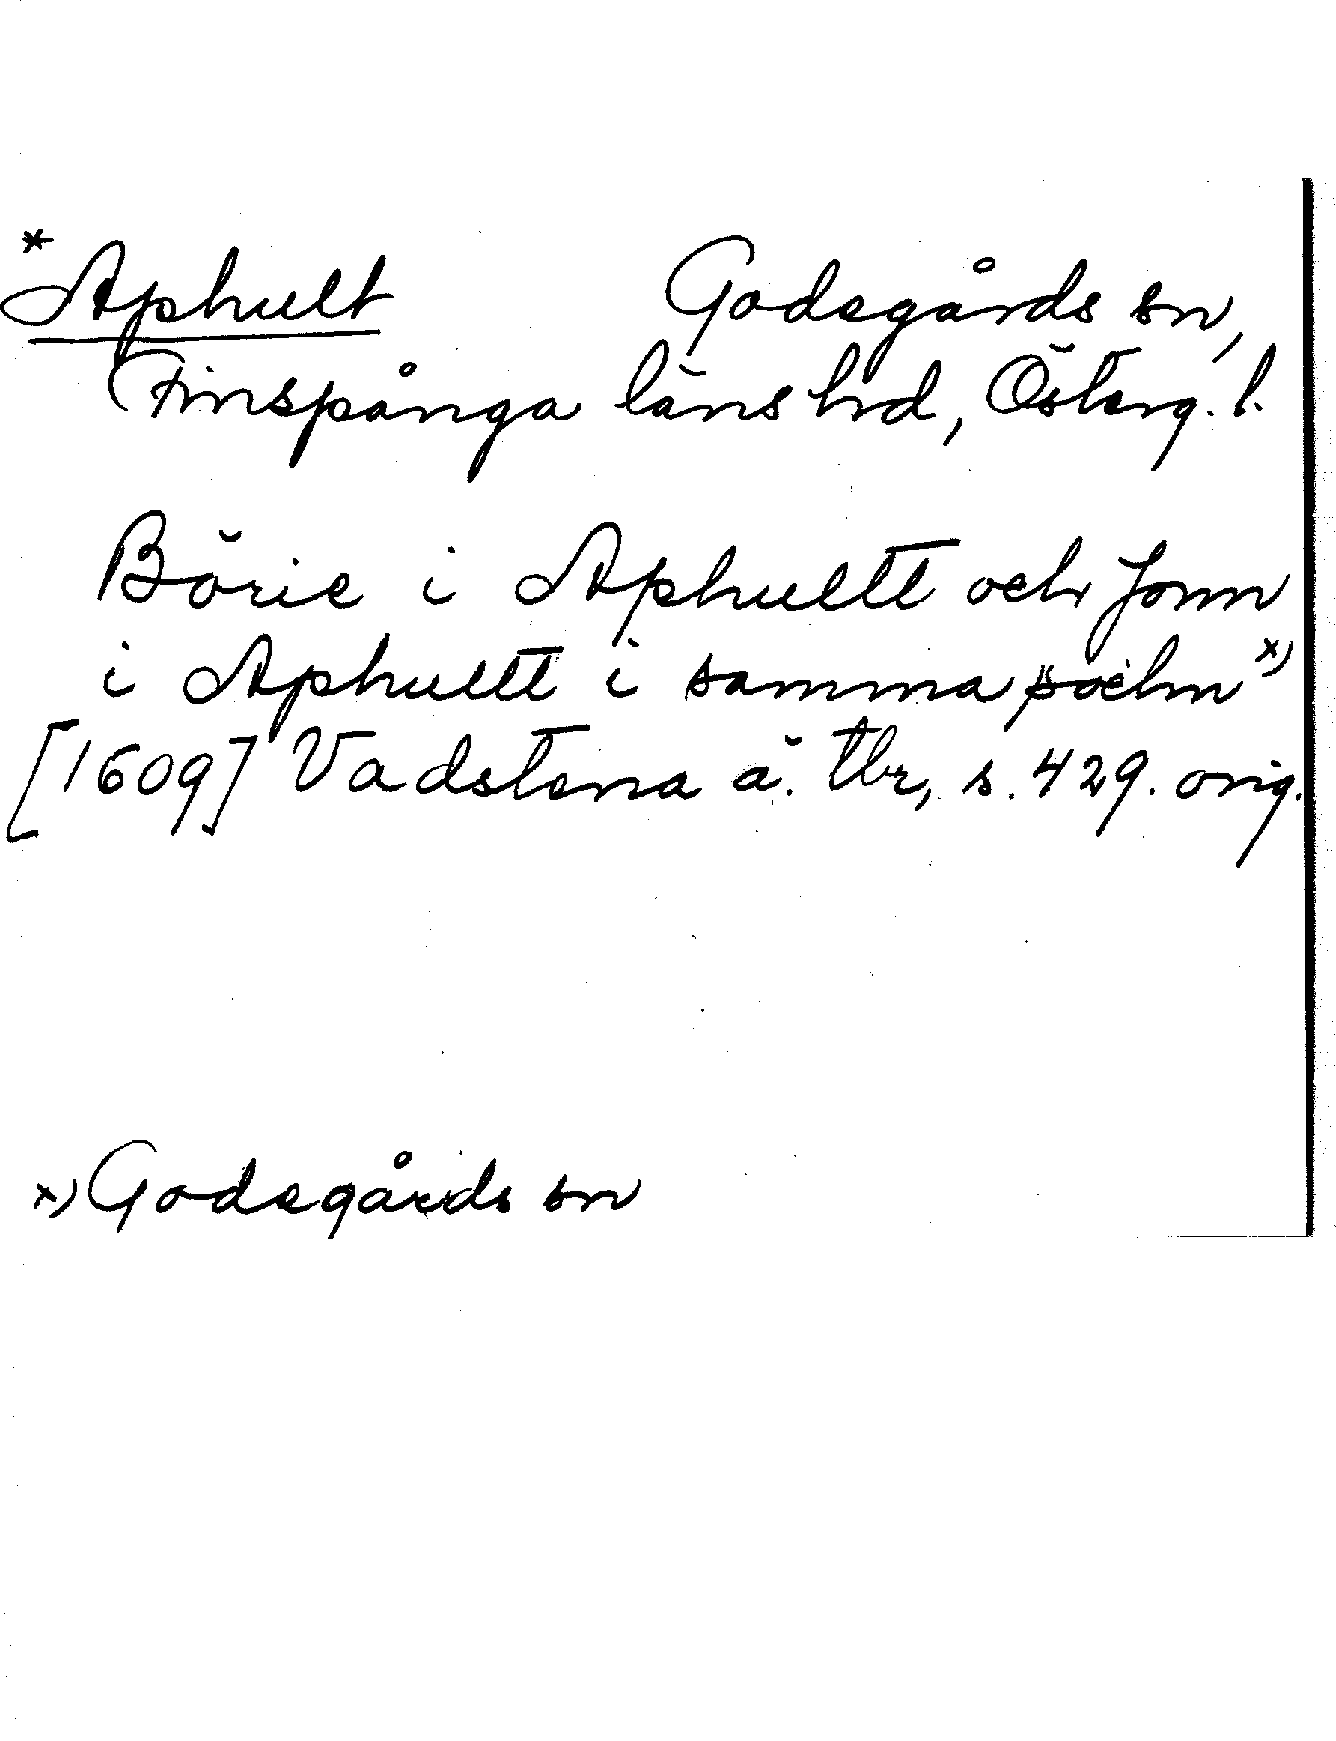 *Aphult Godegårds sn,
Finspånga läns hrd, Österg. l.
Börie i Aphultt och Jonn
i Aphultt i samma sochn x)
[1609] Vadstena ä. tbr, s. 429. orig.
x) Godegårds sn